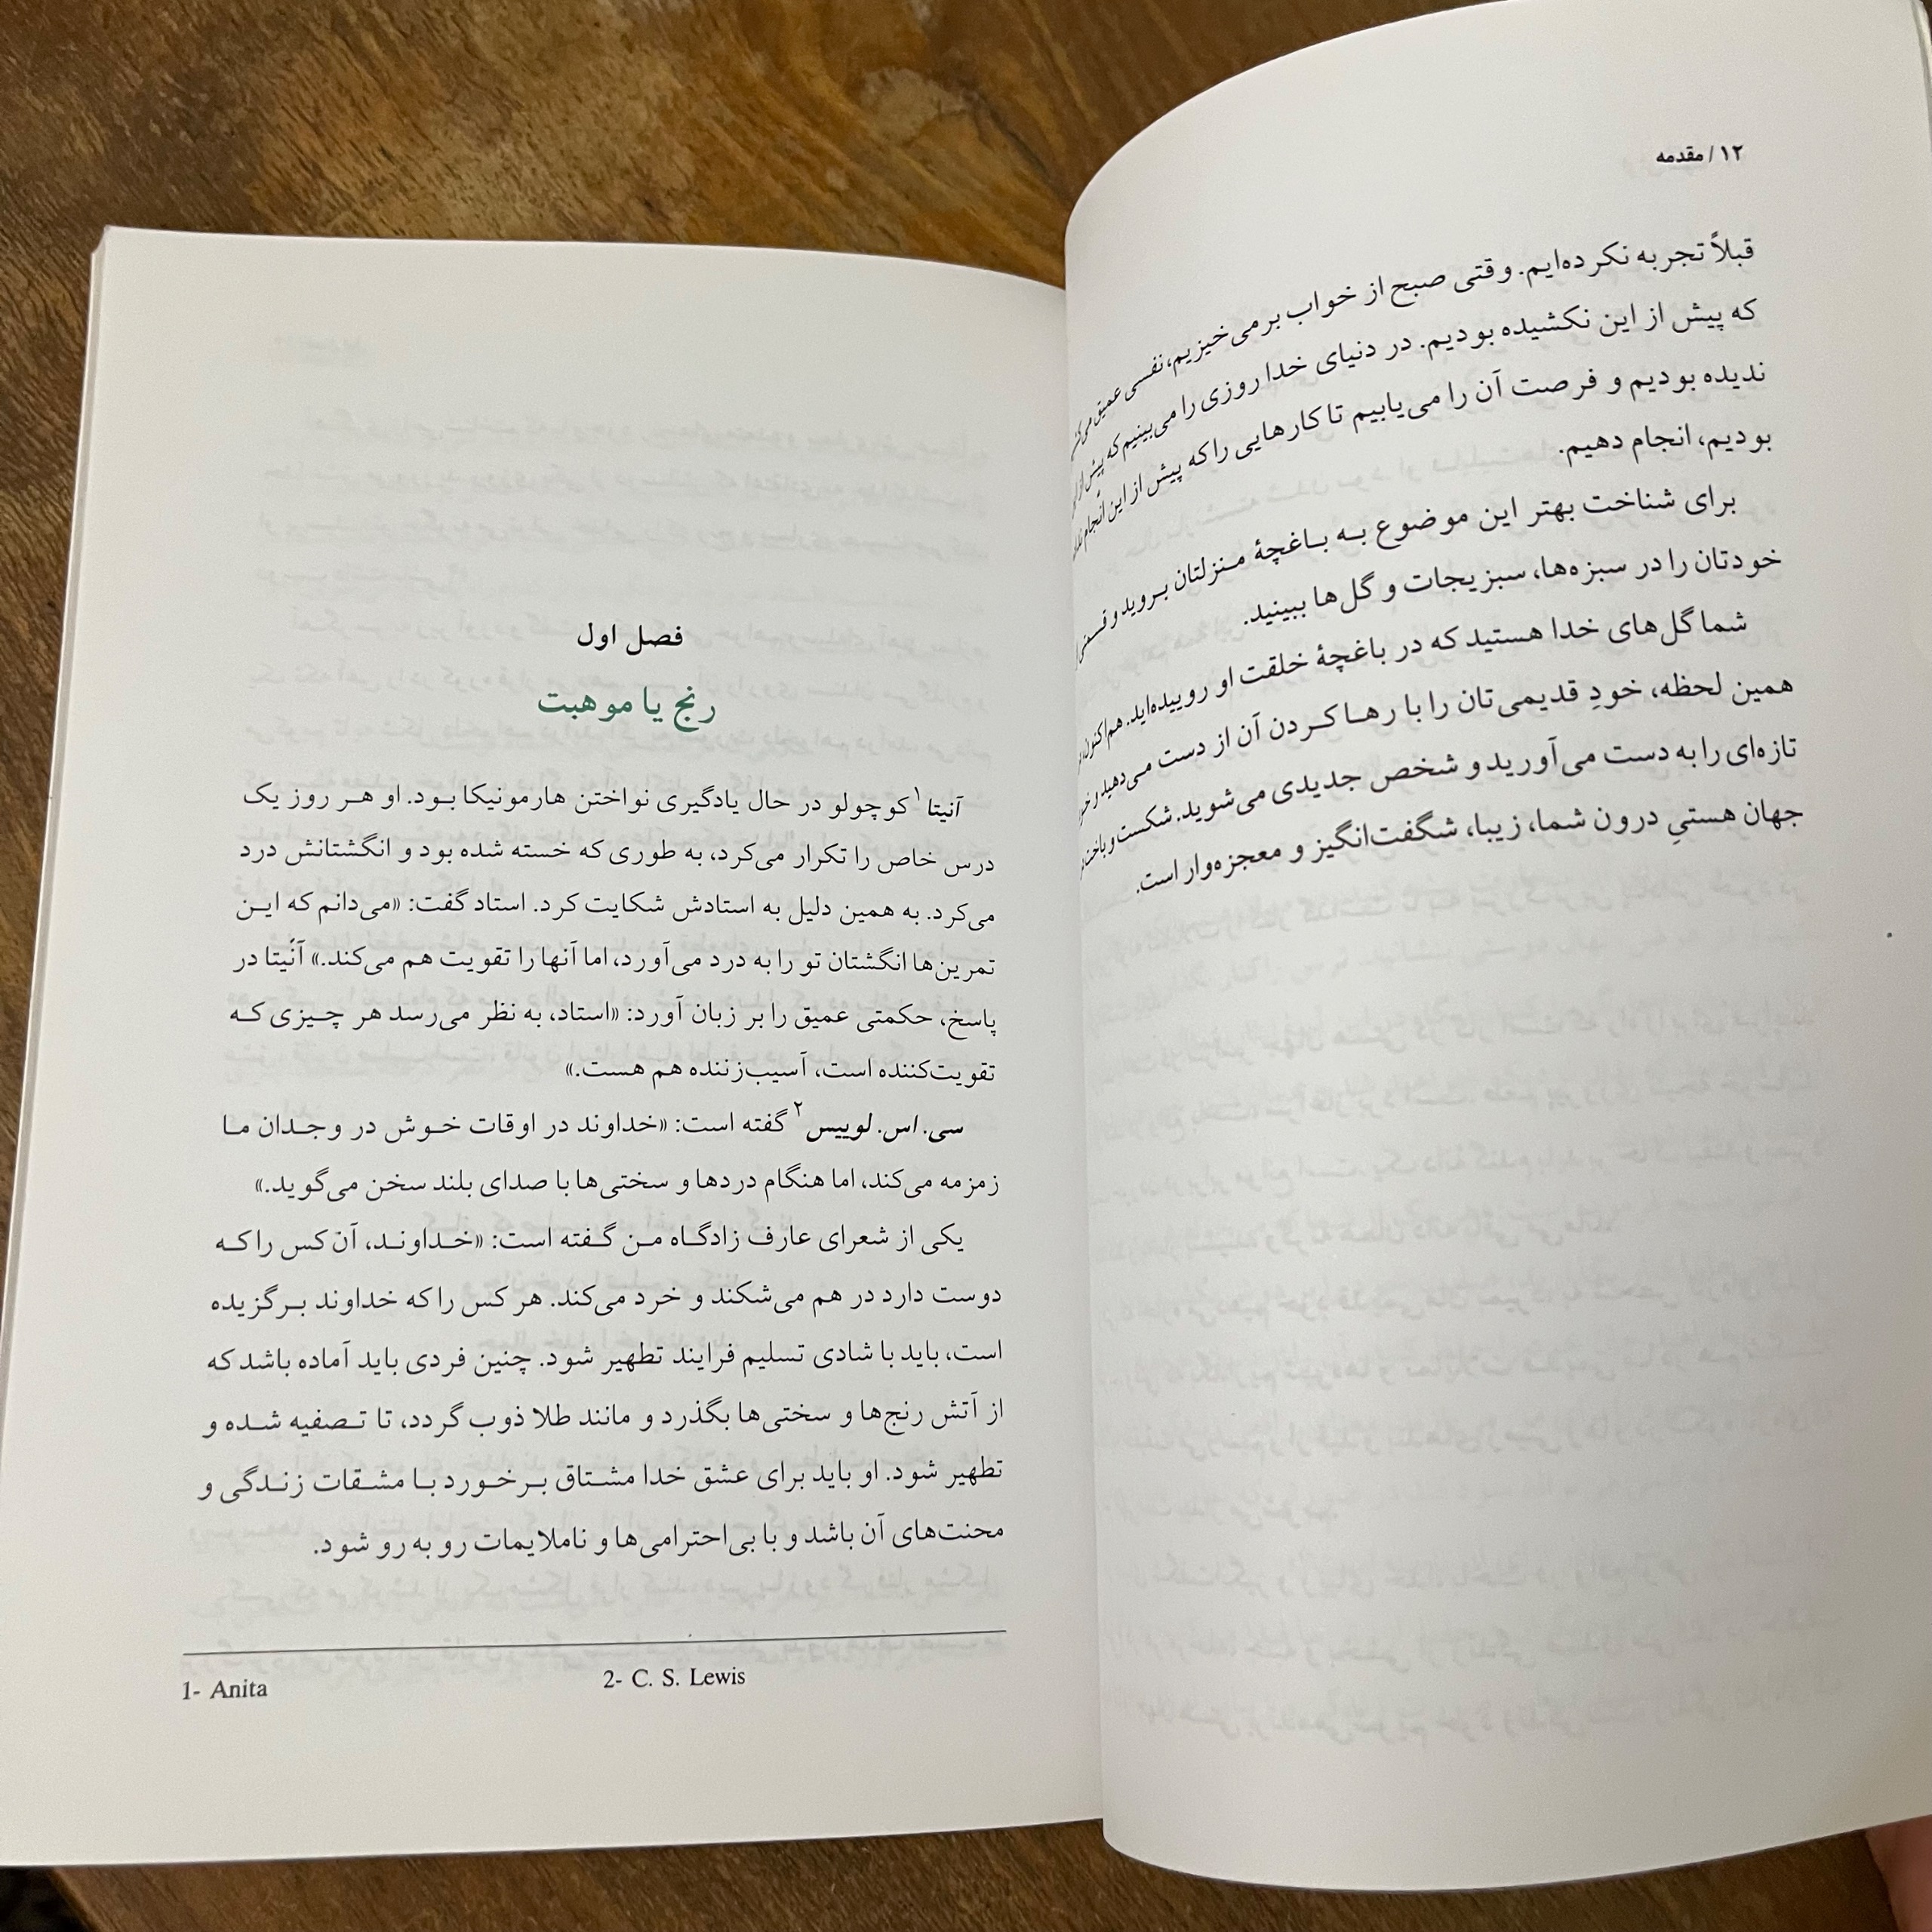 ۱۲ / مقدمه
قبلاً تجربه نکرده‌ایم. وقتی صبح از خواب برمی‌خیزیم، نفسی عمیق
که پیش از این نکشیده بودیم. در دنیای خدا روزی را می‌بینیم که پیش از
ندیده بودیم و فرصت آن را می‌یابیم تا کارهایی را که پیش از این انجام
بودیم، انجام دهیم.
برای شناخت بهتر این موضوع به باغچهٔ منزلتان بروید و
خودتان را در سبزه‌ها، سبزیجات و گل‌ها ببینید.
شما گل‌های خدا هستید که در باغچهٔ خلقت او روییده‌اید. هم‌اکنون،
همین لحظه، خودِ قدیمی‌تان را با رها کردن آن از دست می‌دهید و
تازه‌ای را به دست می‌آورید و شخص جدیدی می‌شوید. شکست و
جهان هستیِ درون شما، زیبا، شگفت‌انگیز و معجزه‌وار است.
فصل اول
رنج یا موهبت
آنیتا۱ کوچولو در حال یادگیری نواختن هارمونیکا بود. او هر روز یک
درس خاص را تکرار می‌کرد، به طوری که خسته شده بود و انگشتانش درد
می‌کرد. به همین دلیل به استادش شکایت کرد. استاد گفت: «می‌دانم که این
تمرین‌ها انگشتان تو را به درد می‌آورد، اما آنها را تقویت هم می‌کند.» آنیتا در
پاسخ، حکمتی عمیق را بر زبان آورد: «استاد، به نظر می‌رسد هر چیزی که
تقویت‌کننده است، آسیب‌زننده هم هست.»
سی. اس. لوییس۲ گفته است: «خداوند در اوقات خوش در وجدان ما
زمزمه می‌کند، اما هنگام دردها و سختی‌ها با صدای بلند سخن می‌گوید.»
یکی از شعرای عارف زادگاه من گفته است: «خداوند، آن کس را که
دوست دارد در هم می‌شکند و خرد می‌کند. هر کس را که خداوند برگزیده
است، باید با شادی تسلیم فرایند تطهیر شود. چنین فردی باید آماده باشد که
از آتش رنج‌ها و سختی‌ها بگذرد و مانند طلا ذوب گردد، تا تصفیه شده و
تطهیر شود. او باید برای عشق خدا مشتاق برخورد با مشقات زندگی و
محنت‌های آن باشد و با بی‌احترامی‌ها و ناملایمات رو به رو شود.
1- Anita 2- C. S. Lewis